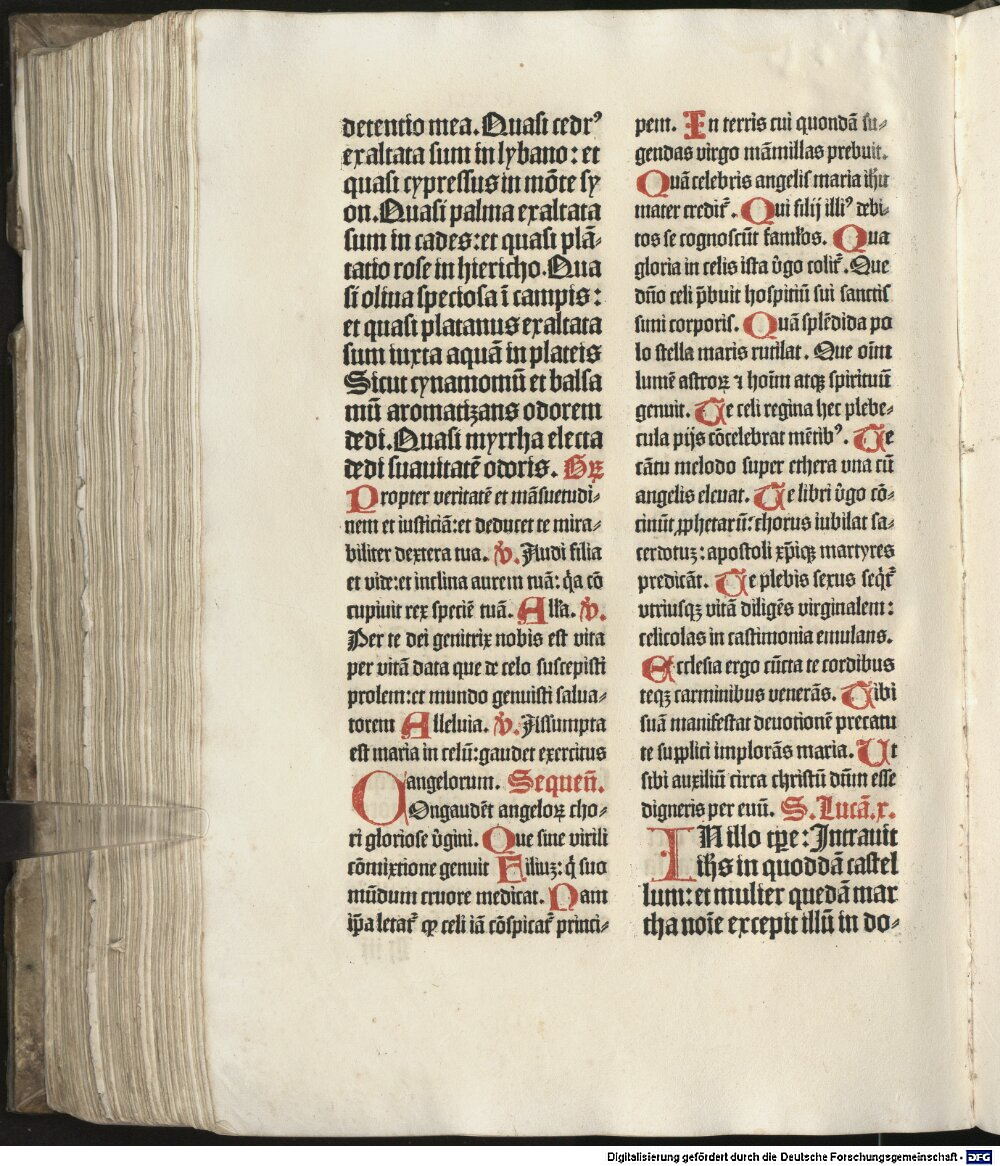 detentio mea. Quasi cedrꝰ
exaltata sum in lybano: et
quasi cypressus in mōte sy
on. Quasi palma exaltata
sum in cades: et quasi plā-
tatio rose in hiericho. Qua
si oliua speciosa ī campis:
et quasi platanus exaltata
sum iuxta aquā in plateis
Sicut cynamomū et balsa
mū aromatizans odorem
dedi. Quasi myrrha electa
dedi suauitatē odoris. Grꝫ
Propter veritatē et māsuetudi-
nem et iusticiā: et deducet te mira-
biliter dextera tua. v̄. Audi filia
et vide: et inclina aurem tuā: q̄a cō
cupiuit rex speciē tuā. Alľa. v̄.
Per te dei genitrix nobis est vita
per vitā data que de celo suscepisti
prolem: et mundo genuisti salua-
torem Alleluia. v̄. Assumpta
est maria in celū: gaudet exercitus
angelorum. Sequen̄.
COngaudēt angeloꝝ cho-
ri gloriose v̄gini. Que sine virili
cōmixtione genuit Filiuꝫ: q̄ suo
mūdum cruore medicat. Nam
ip̄a letat᷒ ꝙ celi iā cōspicat᷒ princi-
pem. In terris cui quondā su-
gendas virgo māmillas prebuit.
Quā celebris angelis maria ihu
mater credit᷒. Qui filij illiꝰ debi-
tos se cognoscūt famľos. Qua
gloria in celis ista v̄go colit᷒. Que
dn̄o celi p̄buit hospitiū sui sanctis
simi corporis. Quā splēdida po
lo stella maris rutilat. Que oīm
lumē astroꝝ ⁊ hoīm atqꝫ spirituū
genuit. Te celi regina hec plebe-
cula pijs cōcelebrat mētibꝰ. Te
cātu melodo super ethera vna cū
angelis eleuat. Te libri v̄go cō-
cinūt ꝓphetarū: chorus iubilat sa-
cerdotuꝫ: apostoli xp̄iqꝫ martyres
predicāt. Te plebis sexus seqt᷒
vtriusqꝫ vitā diligēs virginalem:
celicolas in castimonia emulans.
Ecclesia ergo cūcta te cordibus
teqꝫ carminibus venerās. Tibi
suā manifestat deuotionē precatu
te supplici implorās maria. Ut
sibi auxiliū circa christū dūm esse
digneris per euū. S. Lucā. x.
IN illo tp̄e: Intrauit
ihs in quoddā castel
lum: et mulier quedā mar
tha noīe excepit illū in do-
Digitalisierung gefördert durch die Deutsche Forschungsgemeinschaft - DFG